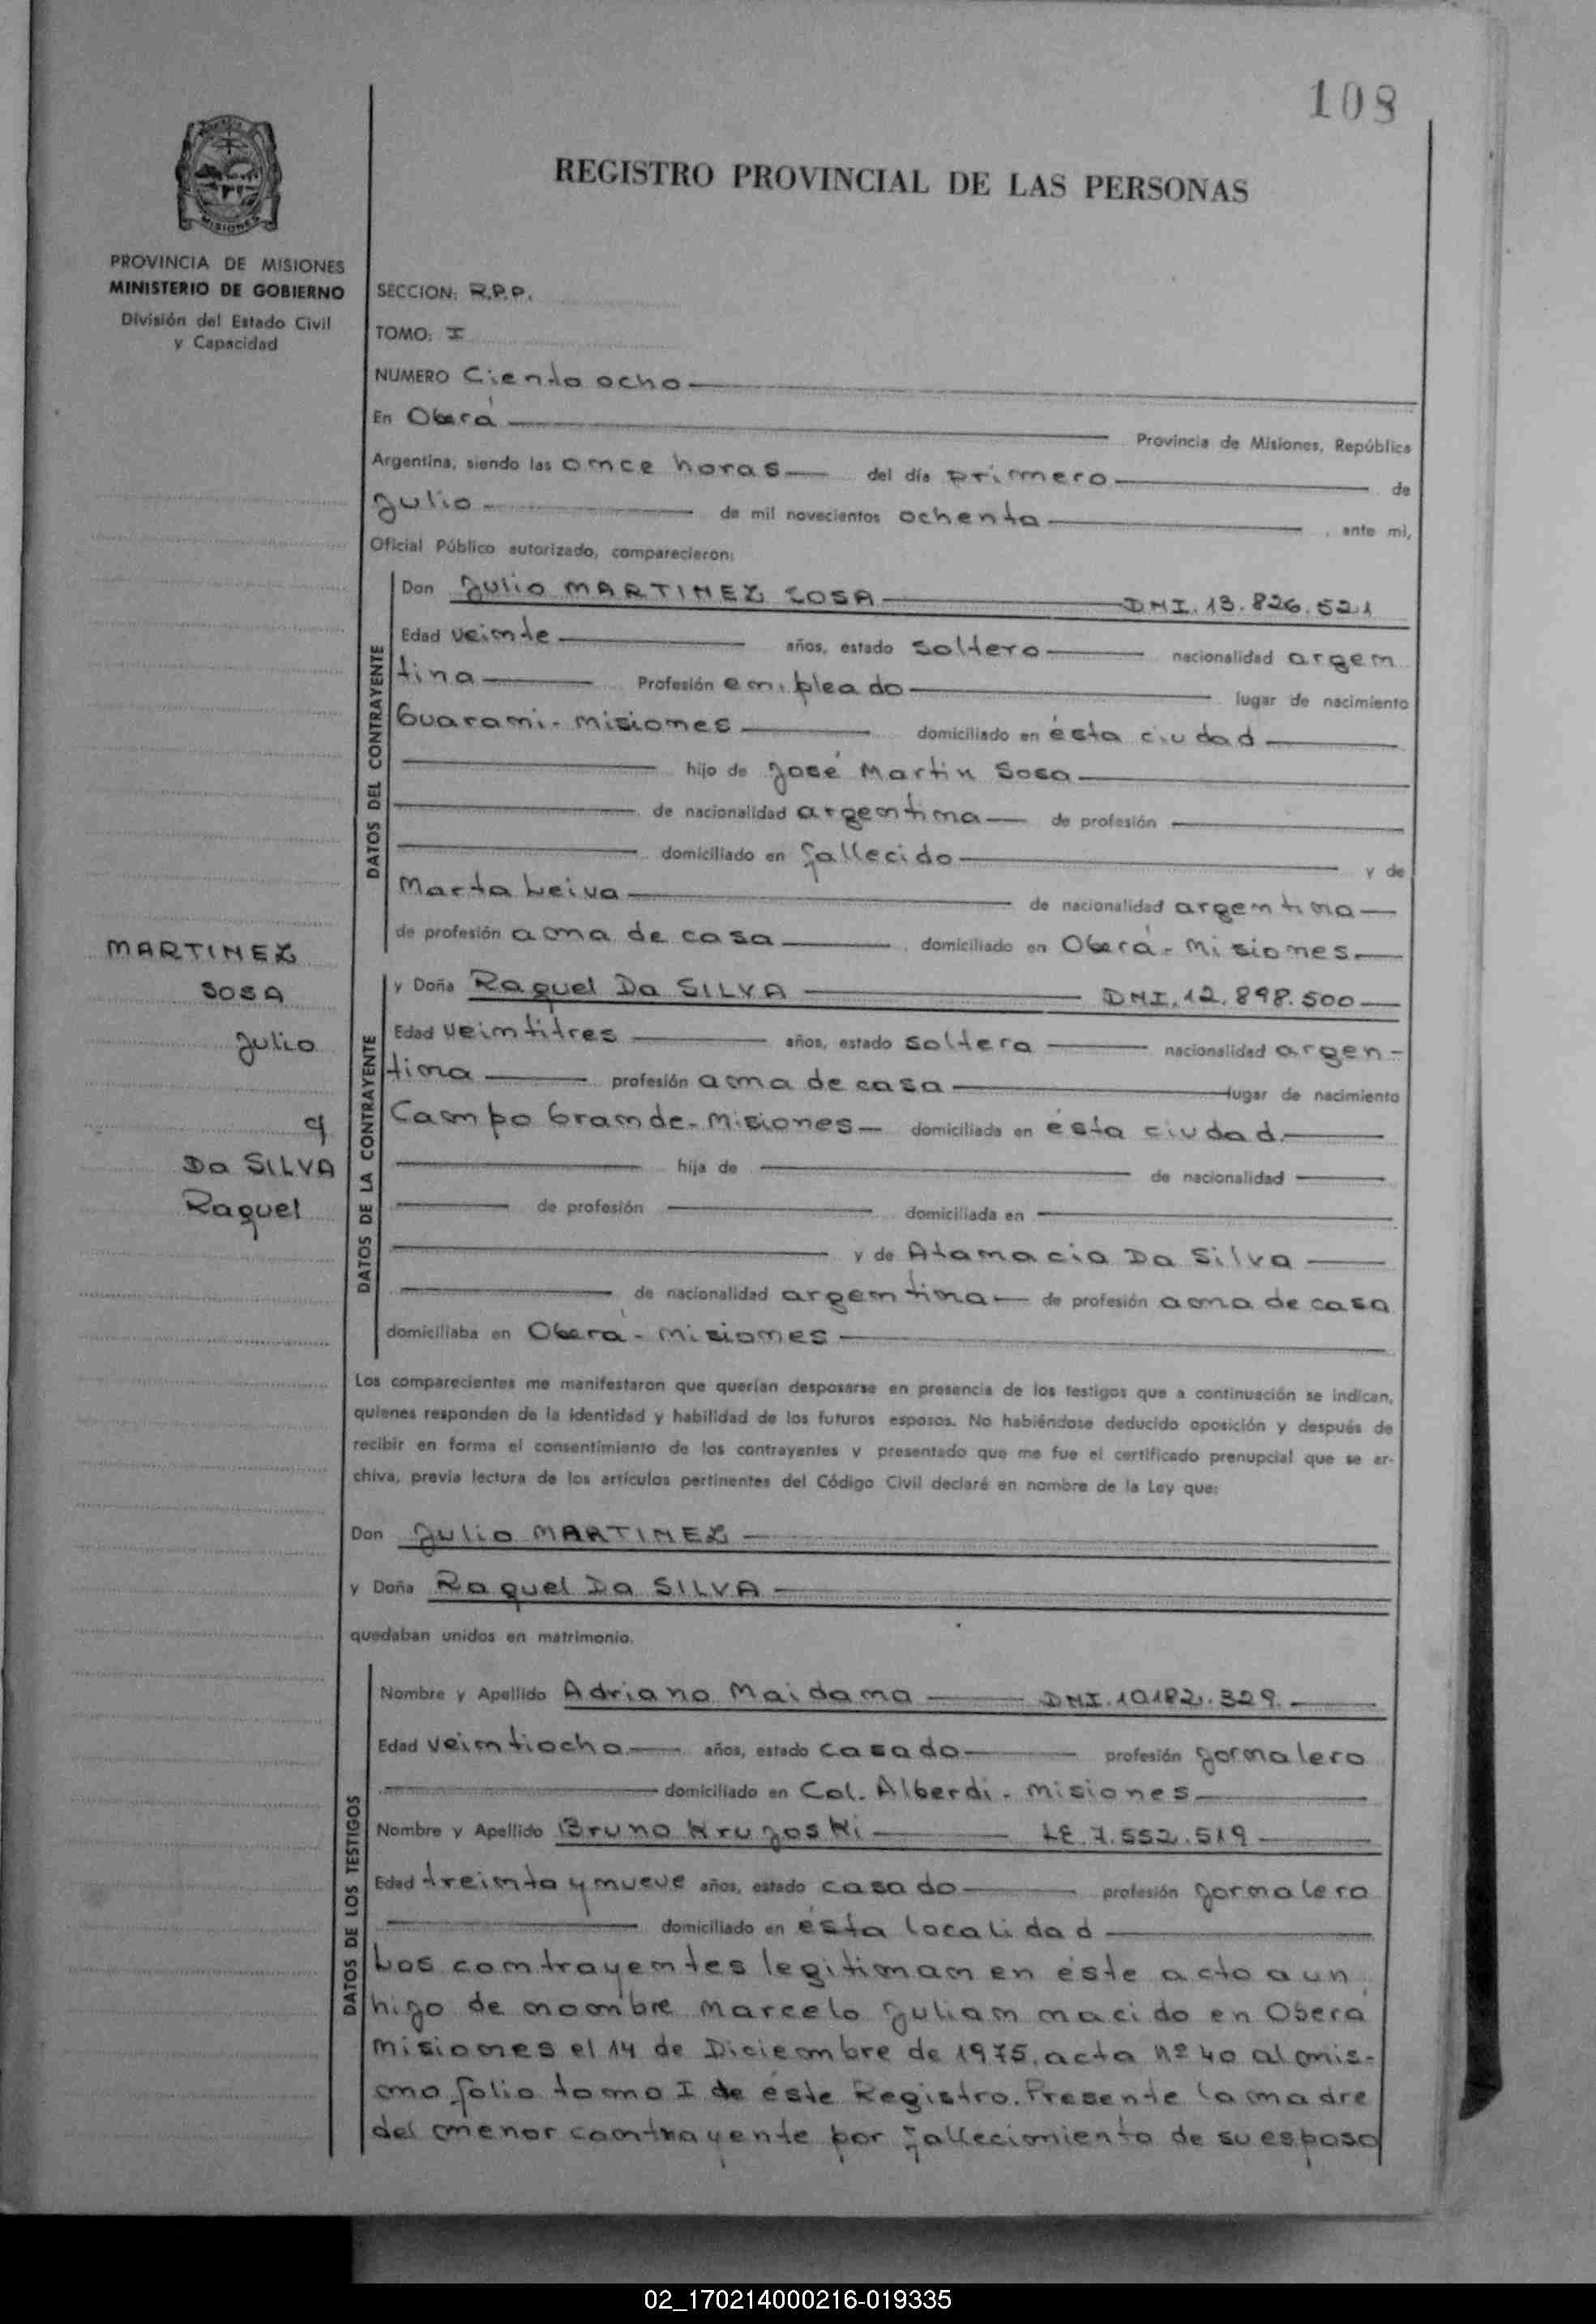 108
REGISTRO PROVINCIAL DE LAS PERSONAS
MISIONES
PROVINCIA DE MISIONES
MINISTERIO DE GOBIERNO
División del Estado Civil
y Capacidad
SECCION: R.P.P.
TOMO: I
NUMERO Ciento ocho
En Oberá Provincia de Misiones, República
Argentina, siendo las once horas del día primero de
Julio de mil novecientos ochenta , ante mi,
Oficial Público autorizado, comparecieron:
DATOS DEL CONTRAYENTE
Don Julio MARTINEZ SOSA DNI. 13.826.521
Edad veinte años, estado soltero nacionalidad argen
tina Profesión empleado lugar de nacimiento
Guarani - Misiones domiciliado en ésta ciudad
hijo de José Martin Sosa
de nacionalidad argentina de profesión
domiciliado en fallecido y de
Marta Leiva de nacionalidad argentina
de profesión ama de casa , domiciliado en Oberá - Misiones.
MARTINEZ
SOSA
Julio
y
Da SILVA
Raquel
DATOS DE LA CONTRAYENTE
y Doña Raquel Da SILVA DNI. 12.898.500
Edad veintitres años, estado soltera nacionalidad argen-
tina profesión ama de casa lugar de nacimiento
Campo Grande - Misiones domiciliada en ésta ciudad.
hija de de nacionalidad
de profesión domiciliada en
y de Atanacia Da Silva
de nacionalidad argentina de profesión ama de casa
domiciliaba en Oberá - Misiones
Los comparecientes me manifestaron que querían desposarse en presencia de los testigos que a continuación se indican,
quienes responden de la identidad y habilidad de los futuros esposos. No habiéndose deducido oposición y después de
recibir en forma el consentimiento de los contrayentes y presentado que me fue el certificado prenupcial que se ar-
chiva, previa lectura de los artículos pertinentes del Código Civil declaré en nombre de la Ley que:
Don Julio MARTINEZ
y Doña Raquel Da SILVA
quedaban unidos en matrimonio.
DATOS DE LOS TESTIGOS
Nombre y Apellido Adriano Maidana DNI. 10.182.329.
Edad veintiocho años, estado casado profesión jornalero
domiciliado en Col. Alberdi - Misiones
Nombre y Apellido Bruno Krujoski LE. 7.552.519
Edad treinta y nueve años, estado casado profesión jornalero
domiciliado en ésta localidad
Los contrayentes legitiman en éste acto a un
hijo de nombre Marcelo Julian nacido en Oberá
Misiones el 14 de Diciembre de 1975, acta nº 40 al mis-
mo folio tomo I de éste Registro. Presente la madre
del menor contrayente por fallecimiento de su esposo
02_170214000216-019335